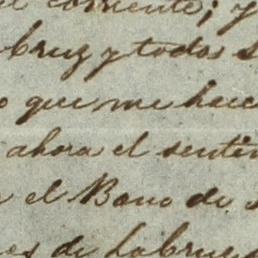 el corriente; y
bruz y todos s
o que me hace
ahora el sentir
el Bano de
es de Labruz